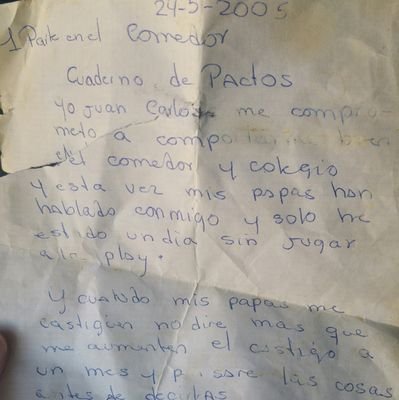 24-5-2005
1 Parte en el Comedor
Cuaderno de PACTOS
Yo Juan Carlos me compro-
meto a comportarme bien
el comedor y colegio
y esta vez mis papas han
hablado conmigo y solo he
estado un dia sin jugar
a la play.
Y cuando mis papas me
castiguen no dire mas que
me aumenten el castigo a
un mes y pensare las cosas
antes de decirlas